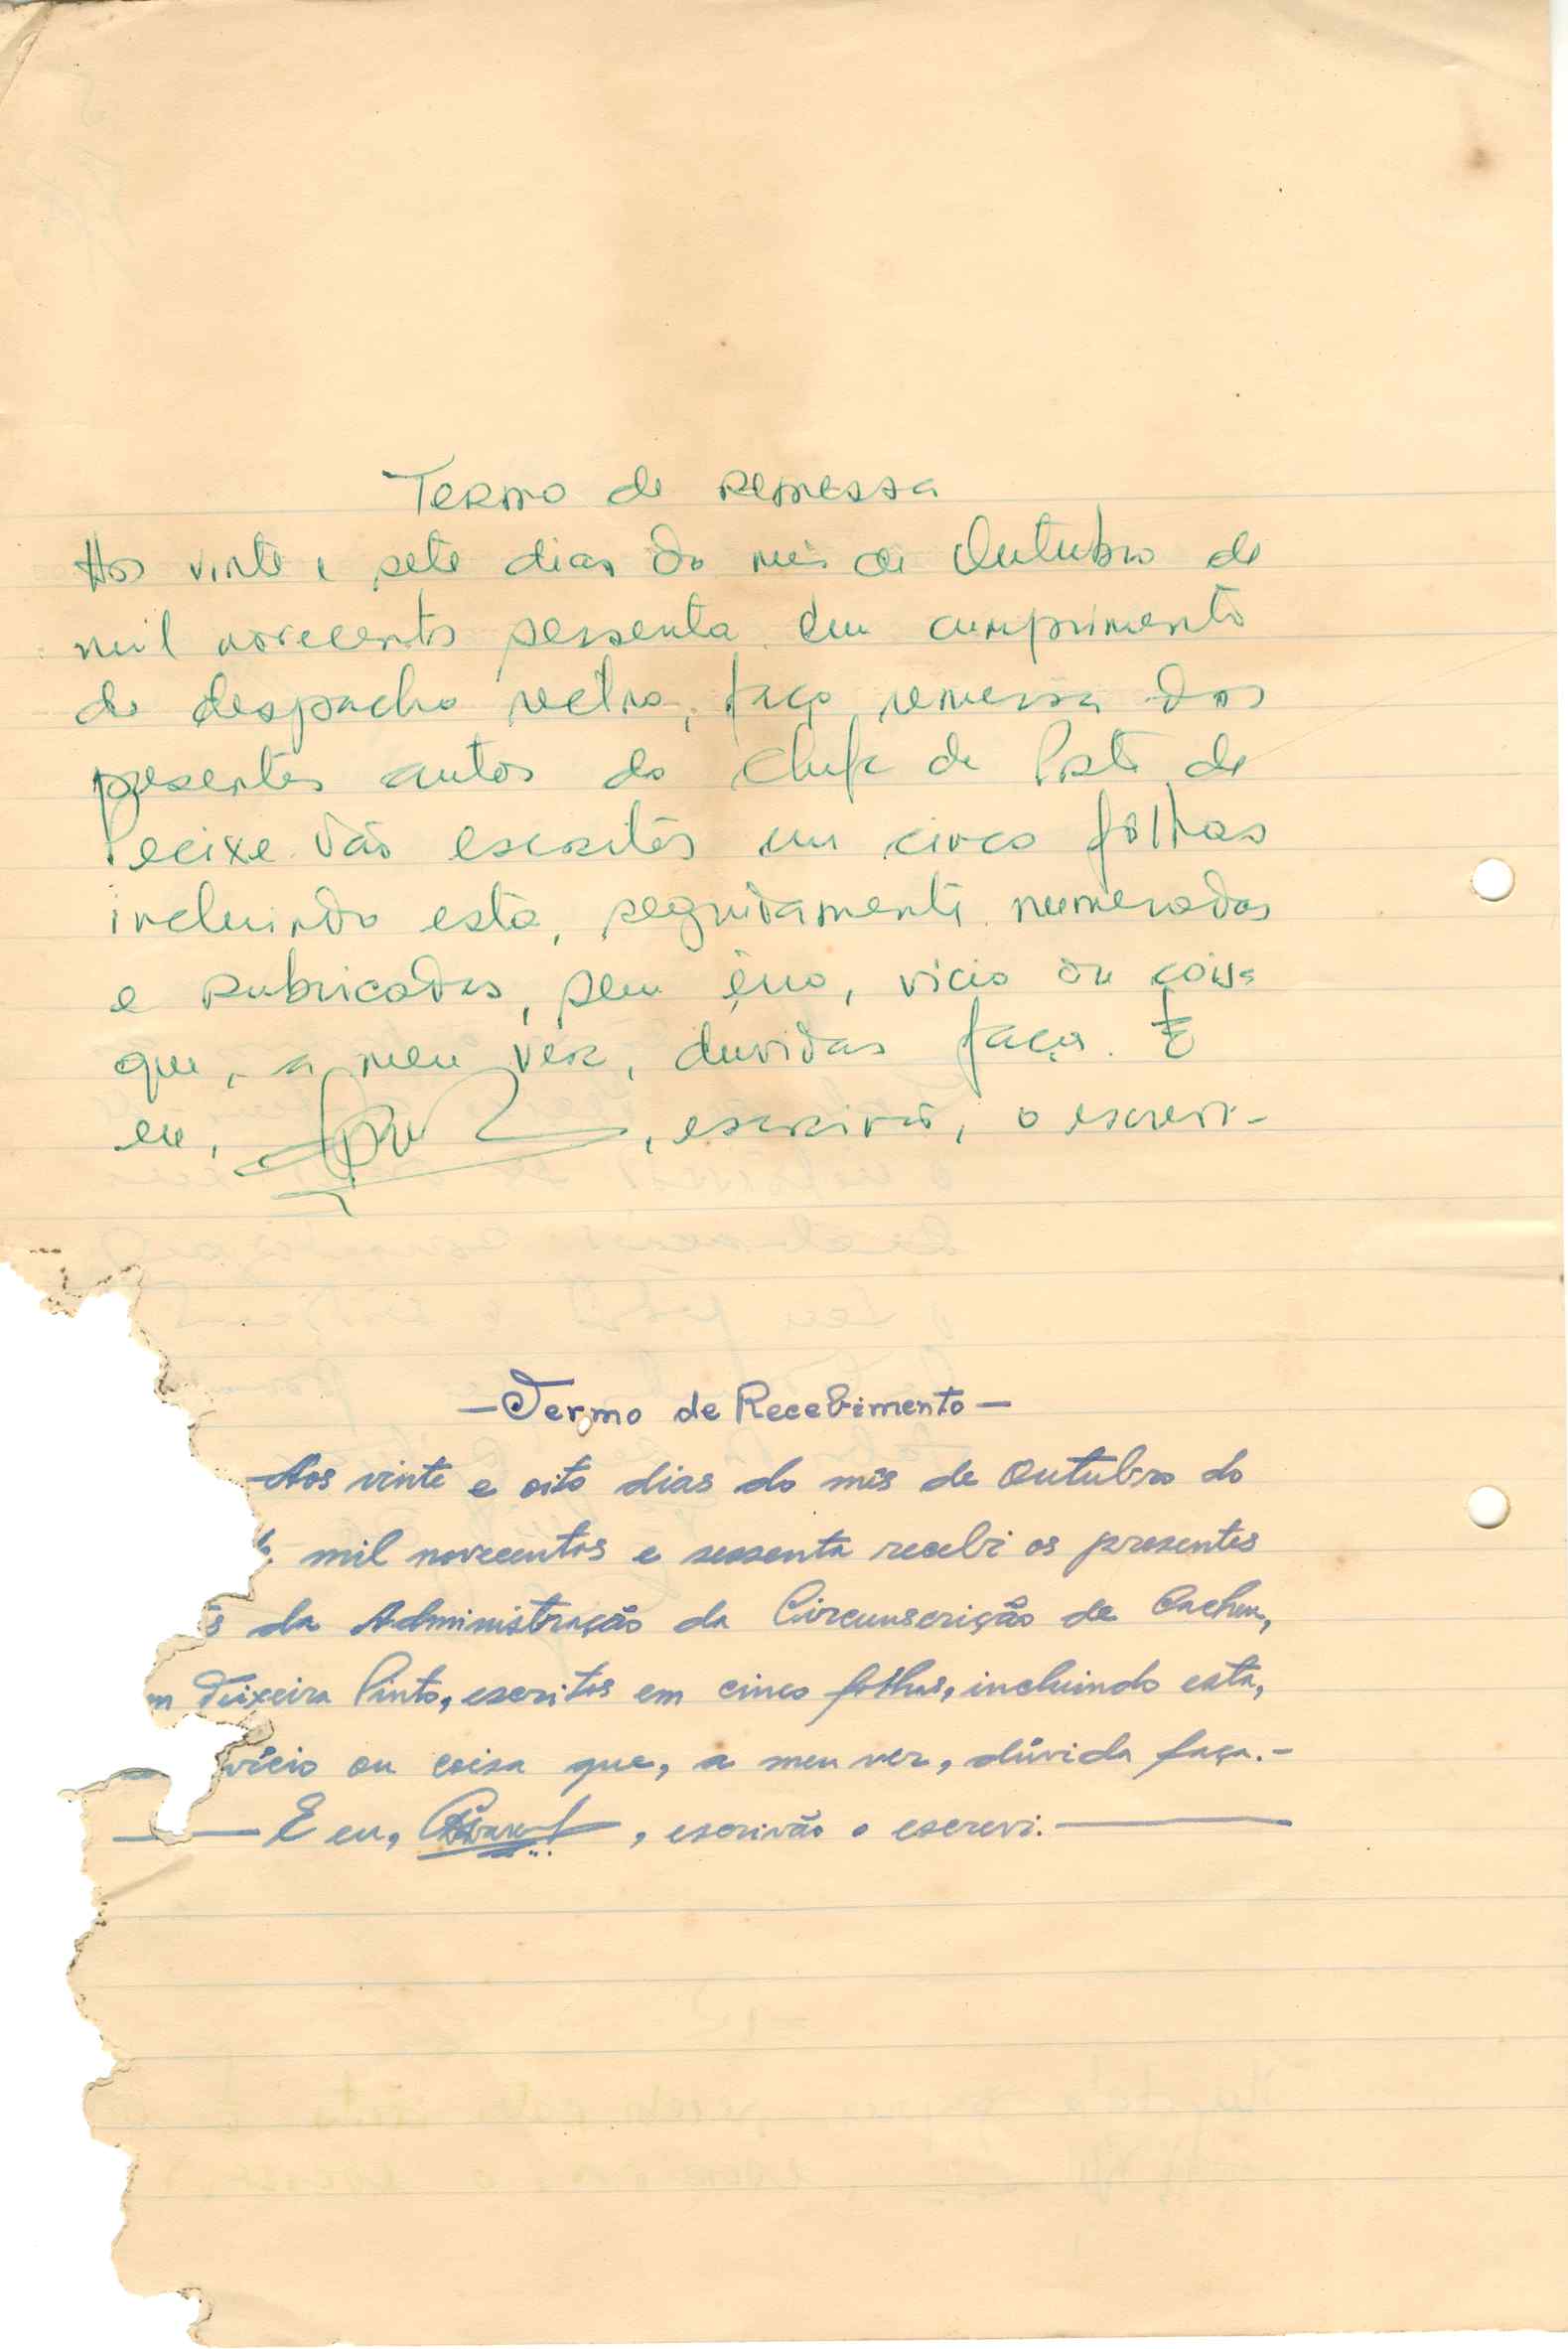 Termo de remessa
Aos vinte e sete dias do mês de Outubro de
mil novecentos sessenta em cumprimento
do despacho rectro, faço remessa dos
presentes autos do Chefe de Posto de
Pecixe. Vão escritos em cinco fôlhas
incluindo esta, seguidamente numeradas
e rubricadas, sem êrro, vicio ou coisa
que, a meu vêr, duvidas faça. E
eu, , escrivão, o escrevi-
—Termo de Recebimento—
Aos vinte e oito dias do mês de Outubro do
mil novecentos e sessenta recebi os presentes
s da Administração da Circunscrição de Cacheu,
m Teixeira Pinto, escritos em cinco fôlhas, incluindo esta,
vício ou coisa que, a meu ver, dúvida faça.-
— E eu, , escrivão o escrevi. —